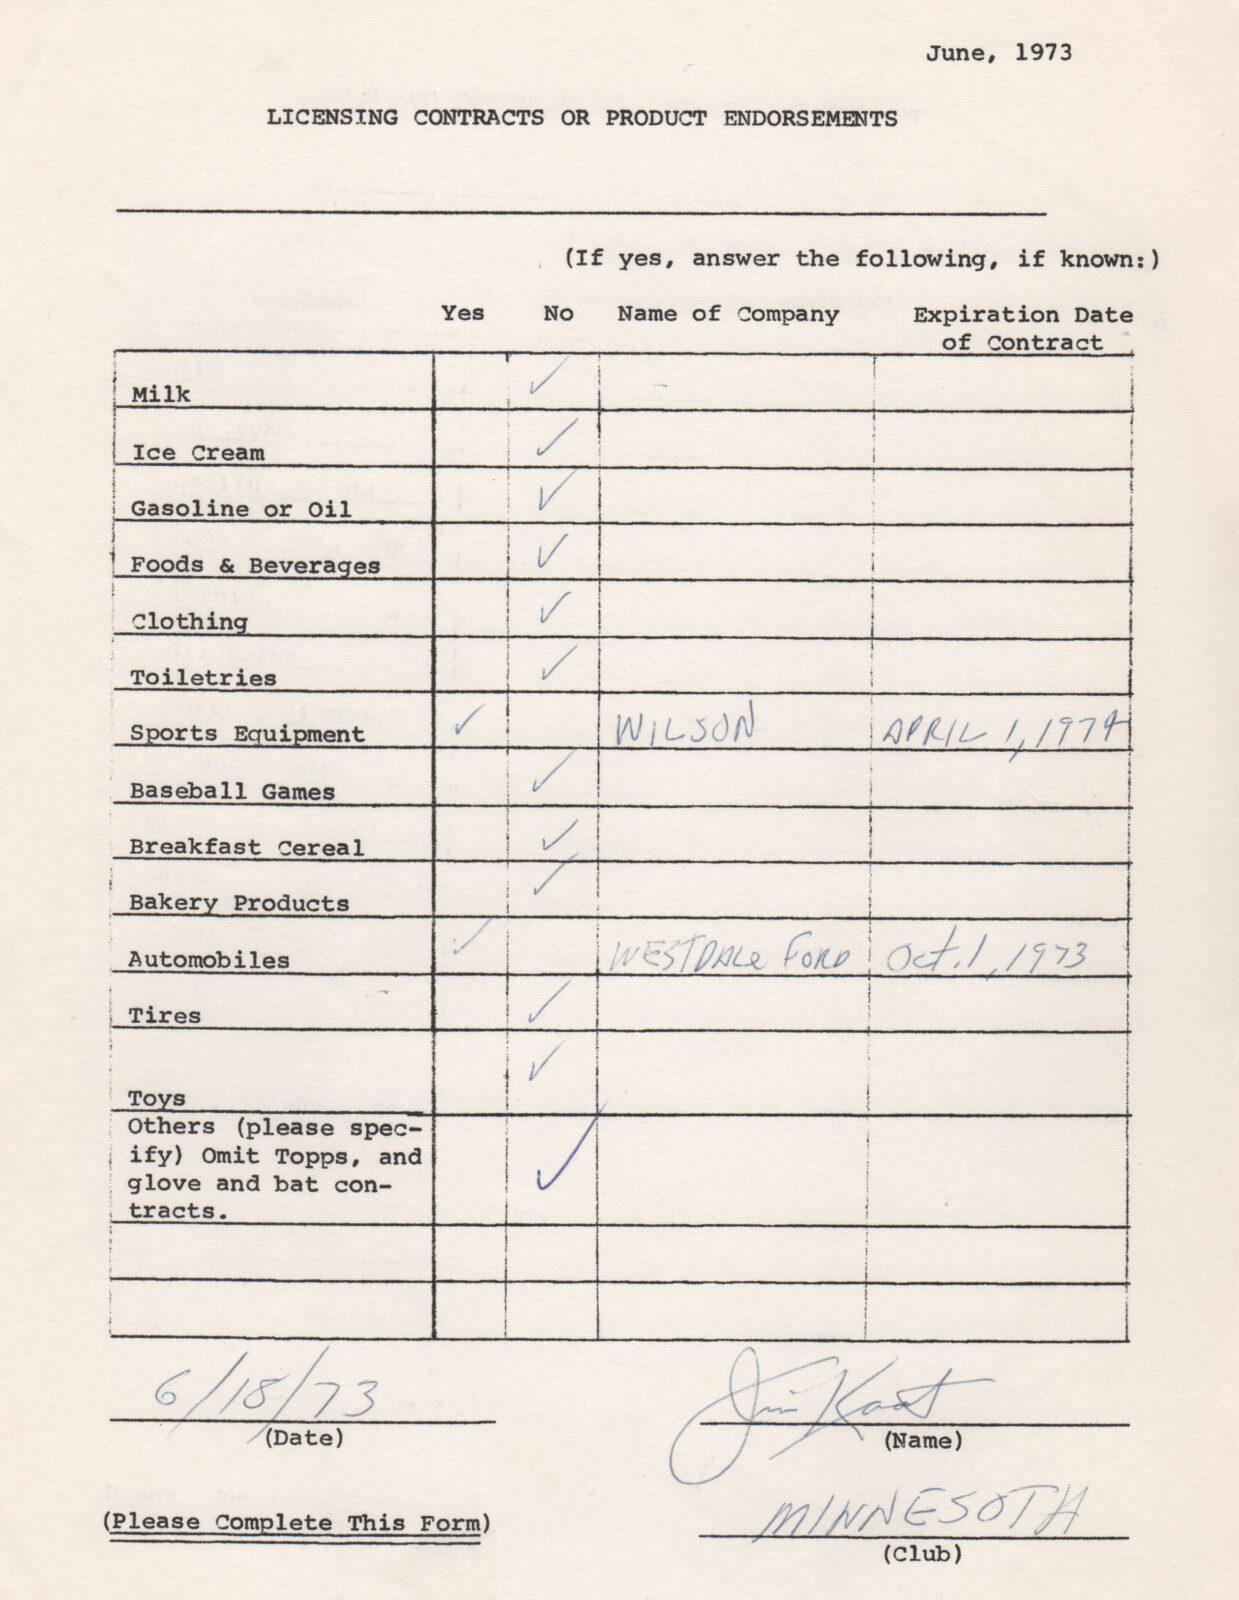 June, 1973
LICENSING CONTRACTS OR PRODUCT ENDORSEMENTS
(If yes, answer the following, if known:)
Yes No Name of Company Expiration Date
of Contract
Milk ✓
Ice Cream ✓
Gasoline or Oil ✓
Foods & Beverages ✓
Clothing ✓
Toiletries ✓
Sports Equipment ✓ WILSON APRIL 1, 1974
Baseball Games ✓
Breakfast Cereal ✓
Bakery Products ✓
Automobiles ✓ WESTDALE FORD Oct. 1, 1973
Tires ✓
Toys ✓
Others (please spec-
ify) Omit Topps, and
glove and bat con-
tracts. ✓
6/18/73 Jim Kaat
(Date) (Name)
(Please Complete This Form) MINNESOTA
(Club)